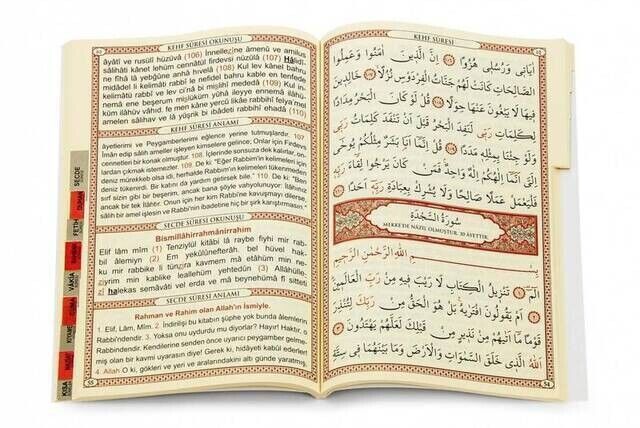 KEHF SÛRESİ OKUNUŞU
âyâtî ve rusulî hüzüvâ (106) İnnellezîne âmenû ve amilus
sâlihâti kânet lehüm cennâtül firdevsi nüzülâ (107) Hâlidî-
ne fîhâ lâ yebğûne anhâ hıvelâ (108) Kul lev kânel bahru
midâdel li kelimâti rabbî le nefidel bahru kable en tenfede
kelimâtü rabbî ve lev ci'nâ bi mislihî mededâ (109) Kul in-
nemâ ene beşerum mislüküm yûhâ ileyye ennemâ ilâhü-
küm ilâhüv vâhid, fe men kâne yercû likâe rabbihî felya'mel
amelen sâlihav ve lâ yüşrik bi ıbâdeti rabbihî ehadâ (110)
KEHF SÛRESİ ANLAMI
âyetlerimi ve Peygamberlerimi eğlence yerine tutmuşlardır. 107
İman edip salih ameller işleyen kimselere gelince; Onlar için Firdevs
cennetleri bir konak olmuştur. 108. İçlerinde sonsuza dek kalırlar, on-
lardan çıkmak istemezler. 109. De ki: "Eğer Rabbim'in kelimeleri için
deniz mürekkeb olsa idi, herhalde Rabbim'in kelimeleri tükenmeden
deniz tükenirdi. Bir katını da yardım getirsek bile." 110. De ki: "Ben
sırf sizin gibi bir beşerim, ancak bana şöyle vahyolunuyor: İlâhınız
ancak bir tek İlâhtır. Onun için her kim Rabbi'ne kavuşmayı diler­se,
salih bir amel işlesin ve Rabbi'nin ibadetine hiç bir şirk karıştırmasın."
SECDE SÛRESİ OKUNUŞU
Bismillâhirrahmânirrahîm
Elif lâm mîm (1) Tenzîylül kitâbi lâ raybe fîyhi mir rab-
bil âlemîyn (2) Em yekûlûnefterâh, bel hüvel hak-
ku mir rabbike li tünzira kavmem mâ etâhüm min ne-
zîyrim min kablike leallehüm yehtedûn (3) Allâhülle-
zî halekas semâvâti vel erda ve mâ beynehümâ fî sitteti
SECDE SÛRESİ ANLAMI
Rahman ve Rahim olan Allah'ın İsmiyle.
1. Elif, Lâm, Mîm. 2. İndirilişi bu kitabın şüphe yok bunda âlemlerin
Rabbi'ndendir. 3. Yoksa onu uydurdu mu diyorlar? Hayır! Haktır, o
Rabbi'ndendir. Kendilerine senden önce uyarıcı peygamber gelme-
miş olan bir kavmi uyarasın diye! Gerek ki, hidâyeti kabul ederler!
4. Allah O ki, gökleri ve yeri ve aralarındakini altı günde yaratmış,
55
SECDE
DUHAN
FETİH
VÂKIA
KIYAME
KISA
KEHF SÛRESİ
اٰيَاتٖى وَرُسُلٖى هُزُوًا ﴿١٠٦﴾ اِنَّ الَّذٖينَ اٰمَنُوا وَعَمِلُوا
الصَّالِحَاتِ كَانَتْ لَهُمْ جَنَّاتُ الْفِرْدَوْسِ نُزُلًا ﴿١٠٧﴾ خَالِدٖينَ
فٖيهَا لَا يَبْغُونَ عَنْهَا حِوَلًا ﴿١٠٨﴾ قُلْ لَوْ كَانَ الْبَحْرُ مِدَادًا
لِكَلِمَاتِ رَبّٖى لَنَفِدَ الْبَحْرُ قَبْلَ اَنْ تَنْفَدَ كَلِمَاتُ رَبّٖى
وَلَوْ جِئْنَا بِمِثْلِهٖ مَدَدًا ﴿١٠٩﴾ قُلْ اِنَّمَا اَنَا بَشَرٌ مِثْلُكُمْ يُوحٰٓى
اِلَىَّ اَنَّمَا اِلٰهُكُمْ اِلٰهٌ وَاحِدٌ فَمَنْ كَانَ يَرْجُوا لِقَاءَ رَبِّهٖ
فَلْيَعْمَلْ عَمَلًا صَالِحًا وَلَا يُشْرِكْ بِعِبَادَةِ رَبِّهٖ اَحَدًا ﴿١١٠﴾
سُورَةُ السَّجْدَةِ
MEKKE'DE NÂZİL OLMUŞTUR. 30 ÂYETTİR.
بِسْمِ اللّٰهِ الرَّحْمٰنِ الرَّحٖيمِ
الٓمٓ ﴿١﴾ تَنْزٖيلُ الْكِتَابِ لَا رَيْبَ فٖيهِ مِنْ رَبِّ الْعَالَمٖينَ
﴿٢﴾ اَمْ يَقُولُونَ افْتَرٰيهُ بَلْ هُوَ الْحَقُّ مِنْ رَبِّكَ لِتُنْذِرَ
قَوْمًا مَا اَتٰيهُمْ مِنْ نَذٖيرٍ مِنْ قَبْلِكَ لَعَلَّهُمْ يَهْتَدُونَ ﴿٣﴾
اَللّٰهُ الَّذٖى خَلَقَ السَّمٰوَاتِ وَالْاَرْضَ وَمَا بَيْنَهُمَا فٖى سِتَّةِ
54